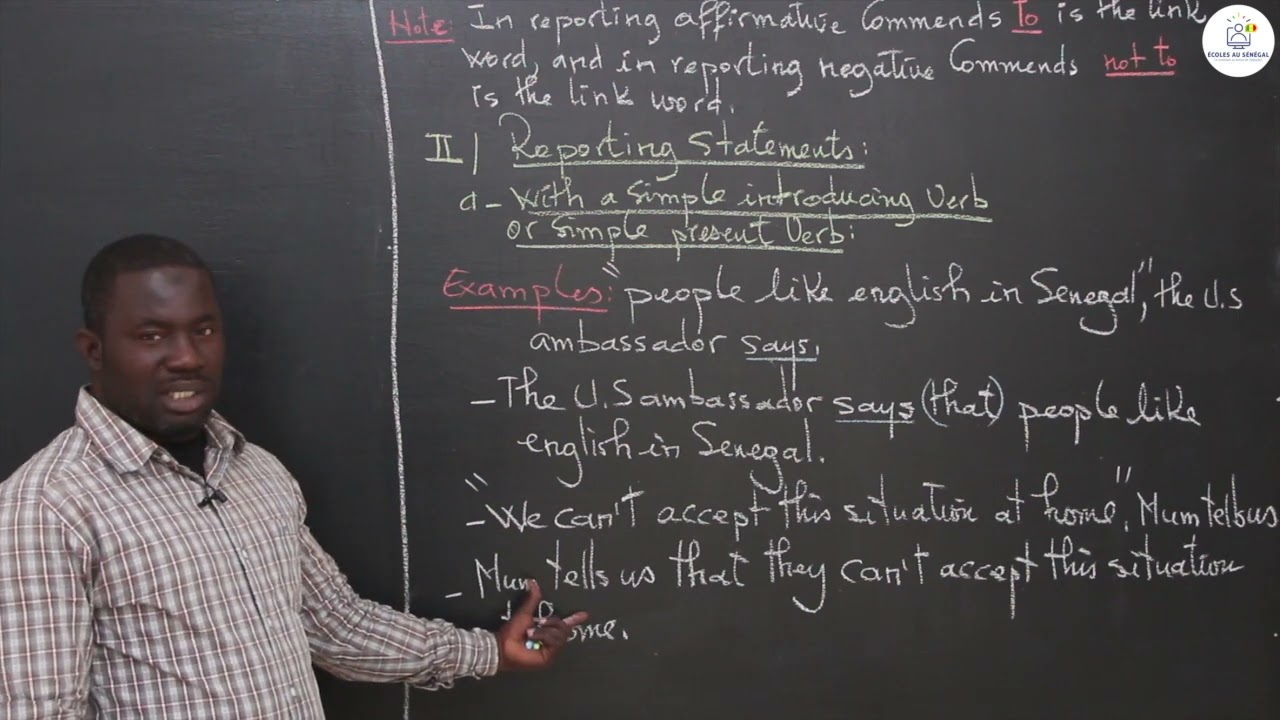 Note: In reporting affirmative Commends To is the link
word, and in reporting negative Commends not to
is the link word.
II) Reporting Statements:
a- With a Simple introducing Verb
or Simple present Verb:
Examples: "people like english in Senegal", the U.S
ambassador says.
- The U.S ambassador says (that) people like
english in Senegal.
- "We can't accept this situation at home", Mum tells us
- Mum tells us that they can't accept this situation
home.
ÉCOLES AU SÉNÉGAL